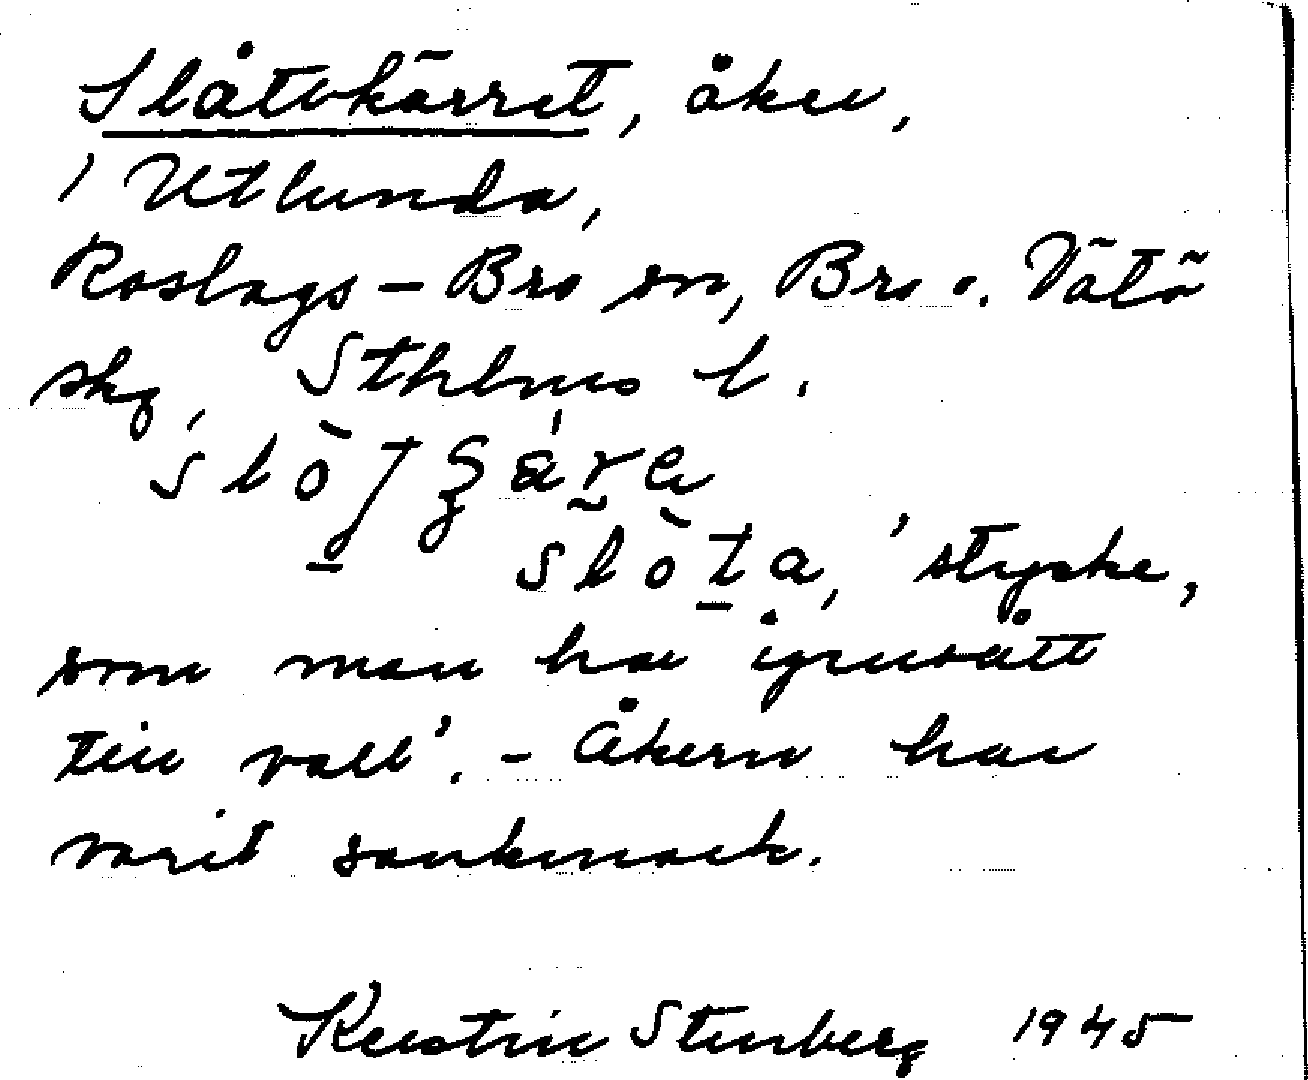 Slåtvkärret, åker,
i Utlunda,
Roslags-Bro sn, Bro o. Vätö
skg, Sthlms l.
slòta, 'stycke,
som man har igensått
till vall'. - Åkern har
varit sankmark.
Kerstin Stenberg 1945